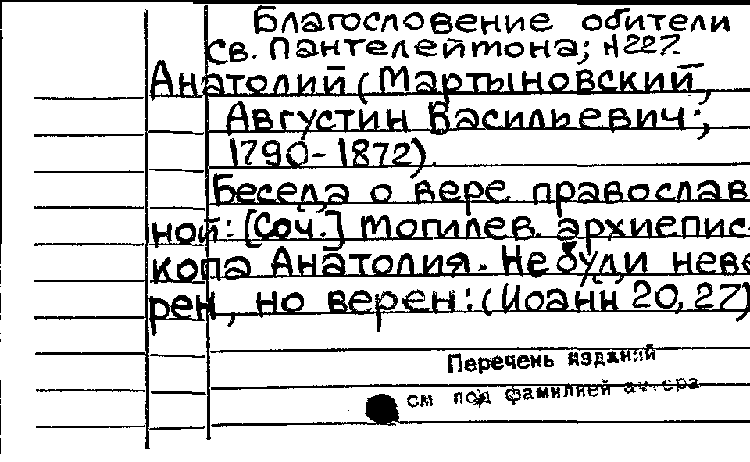 Благословение обители
св. Пантелеймона; №227.
Анатолий (Мартыновский,
Августин Васильевич;
1790-1872).
Беседа о вере православ
ной: [Соч.] Могилев. архиепис-
копа Анатолия. Не буди неве
рен, но верен: (Иоанн 20, 27)
Перечень изданий
см под фамилией автора